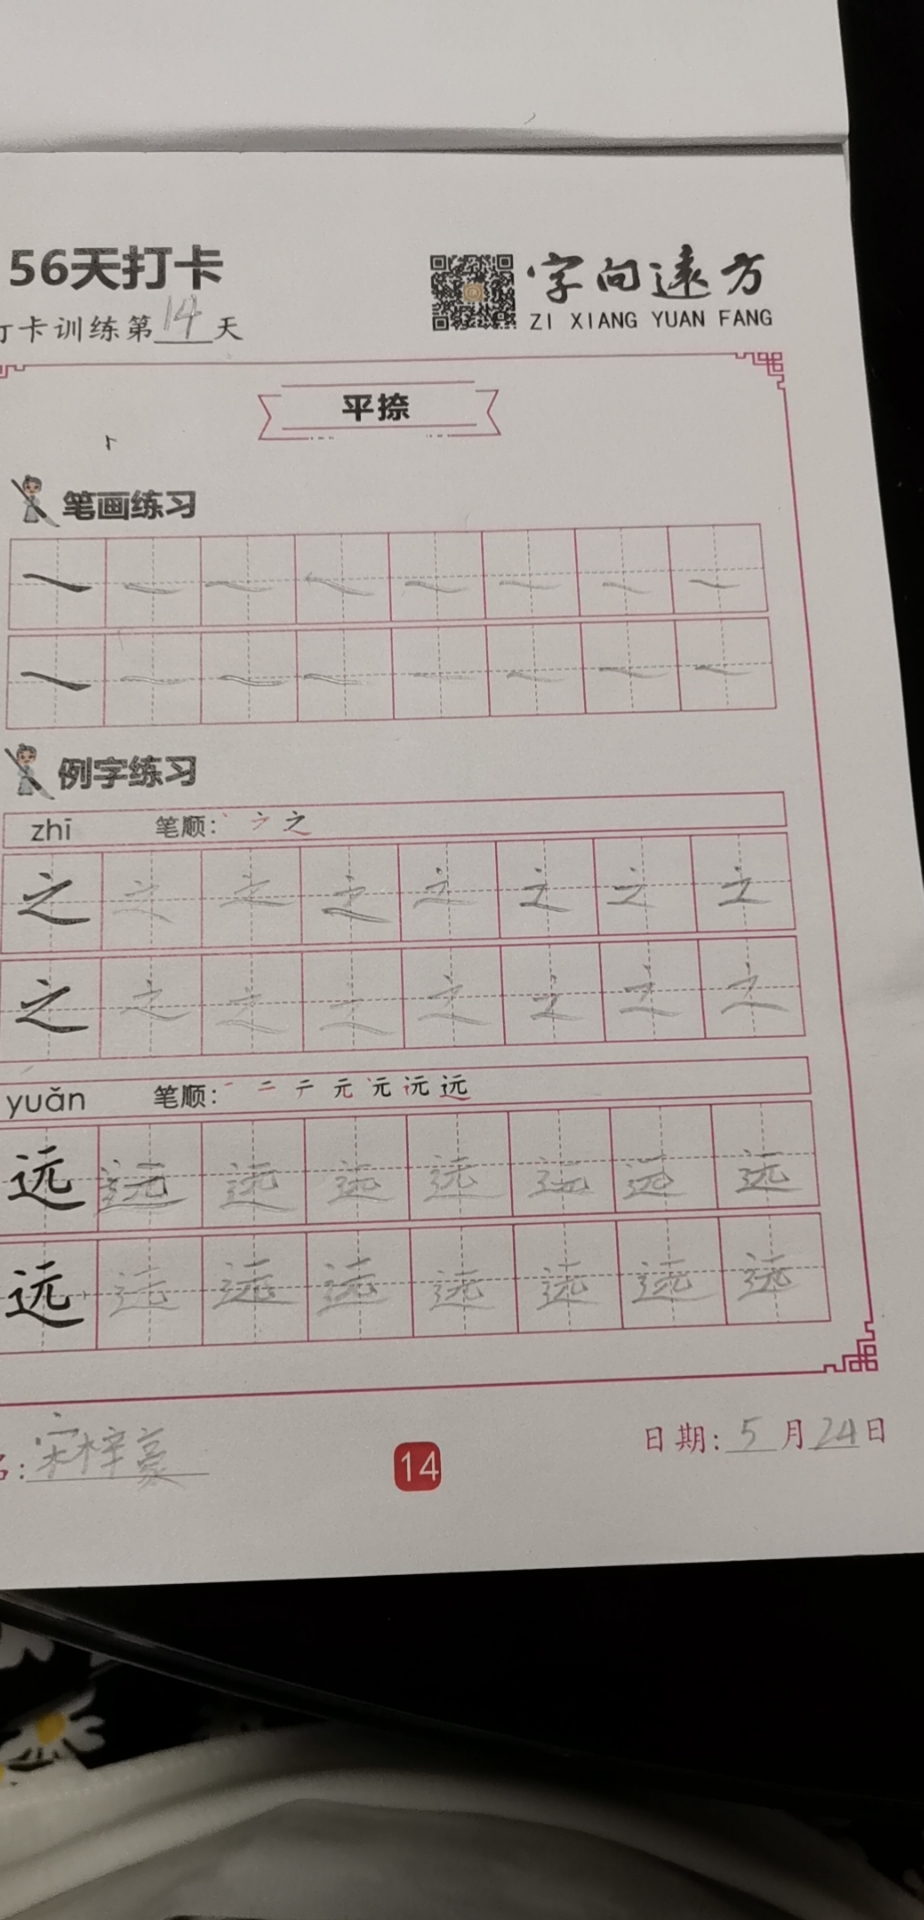 56天打卡
字向遠方
ZI XIANG YUAN FANG
打卡训练第14天
平捺
笔画练习
例字练习
zhī 笔顺: 丶 ㇇ 之
之 之 之 之 之 之 之 之
之 之 之 之 之 之 之 之
yuǎn 笔顺: 一 二 テ 元 沅 远 远
远 远 远 远 远 远 远 远
远 远 远 远 远 远 远 远
名: 宋梓豪
14
日期: 5月24日